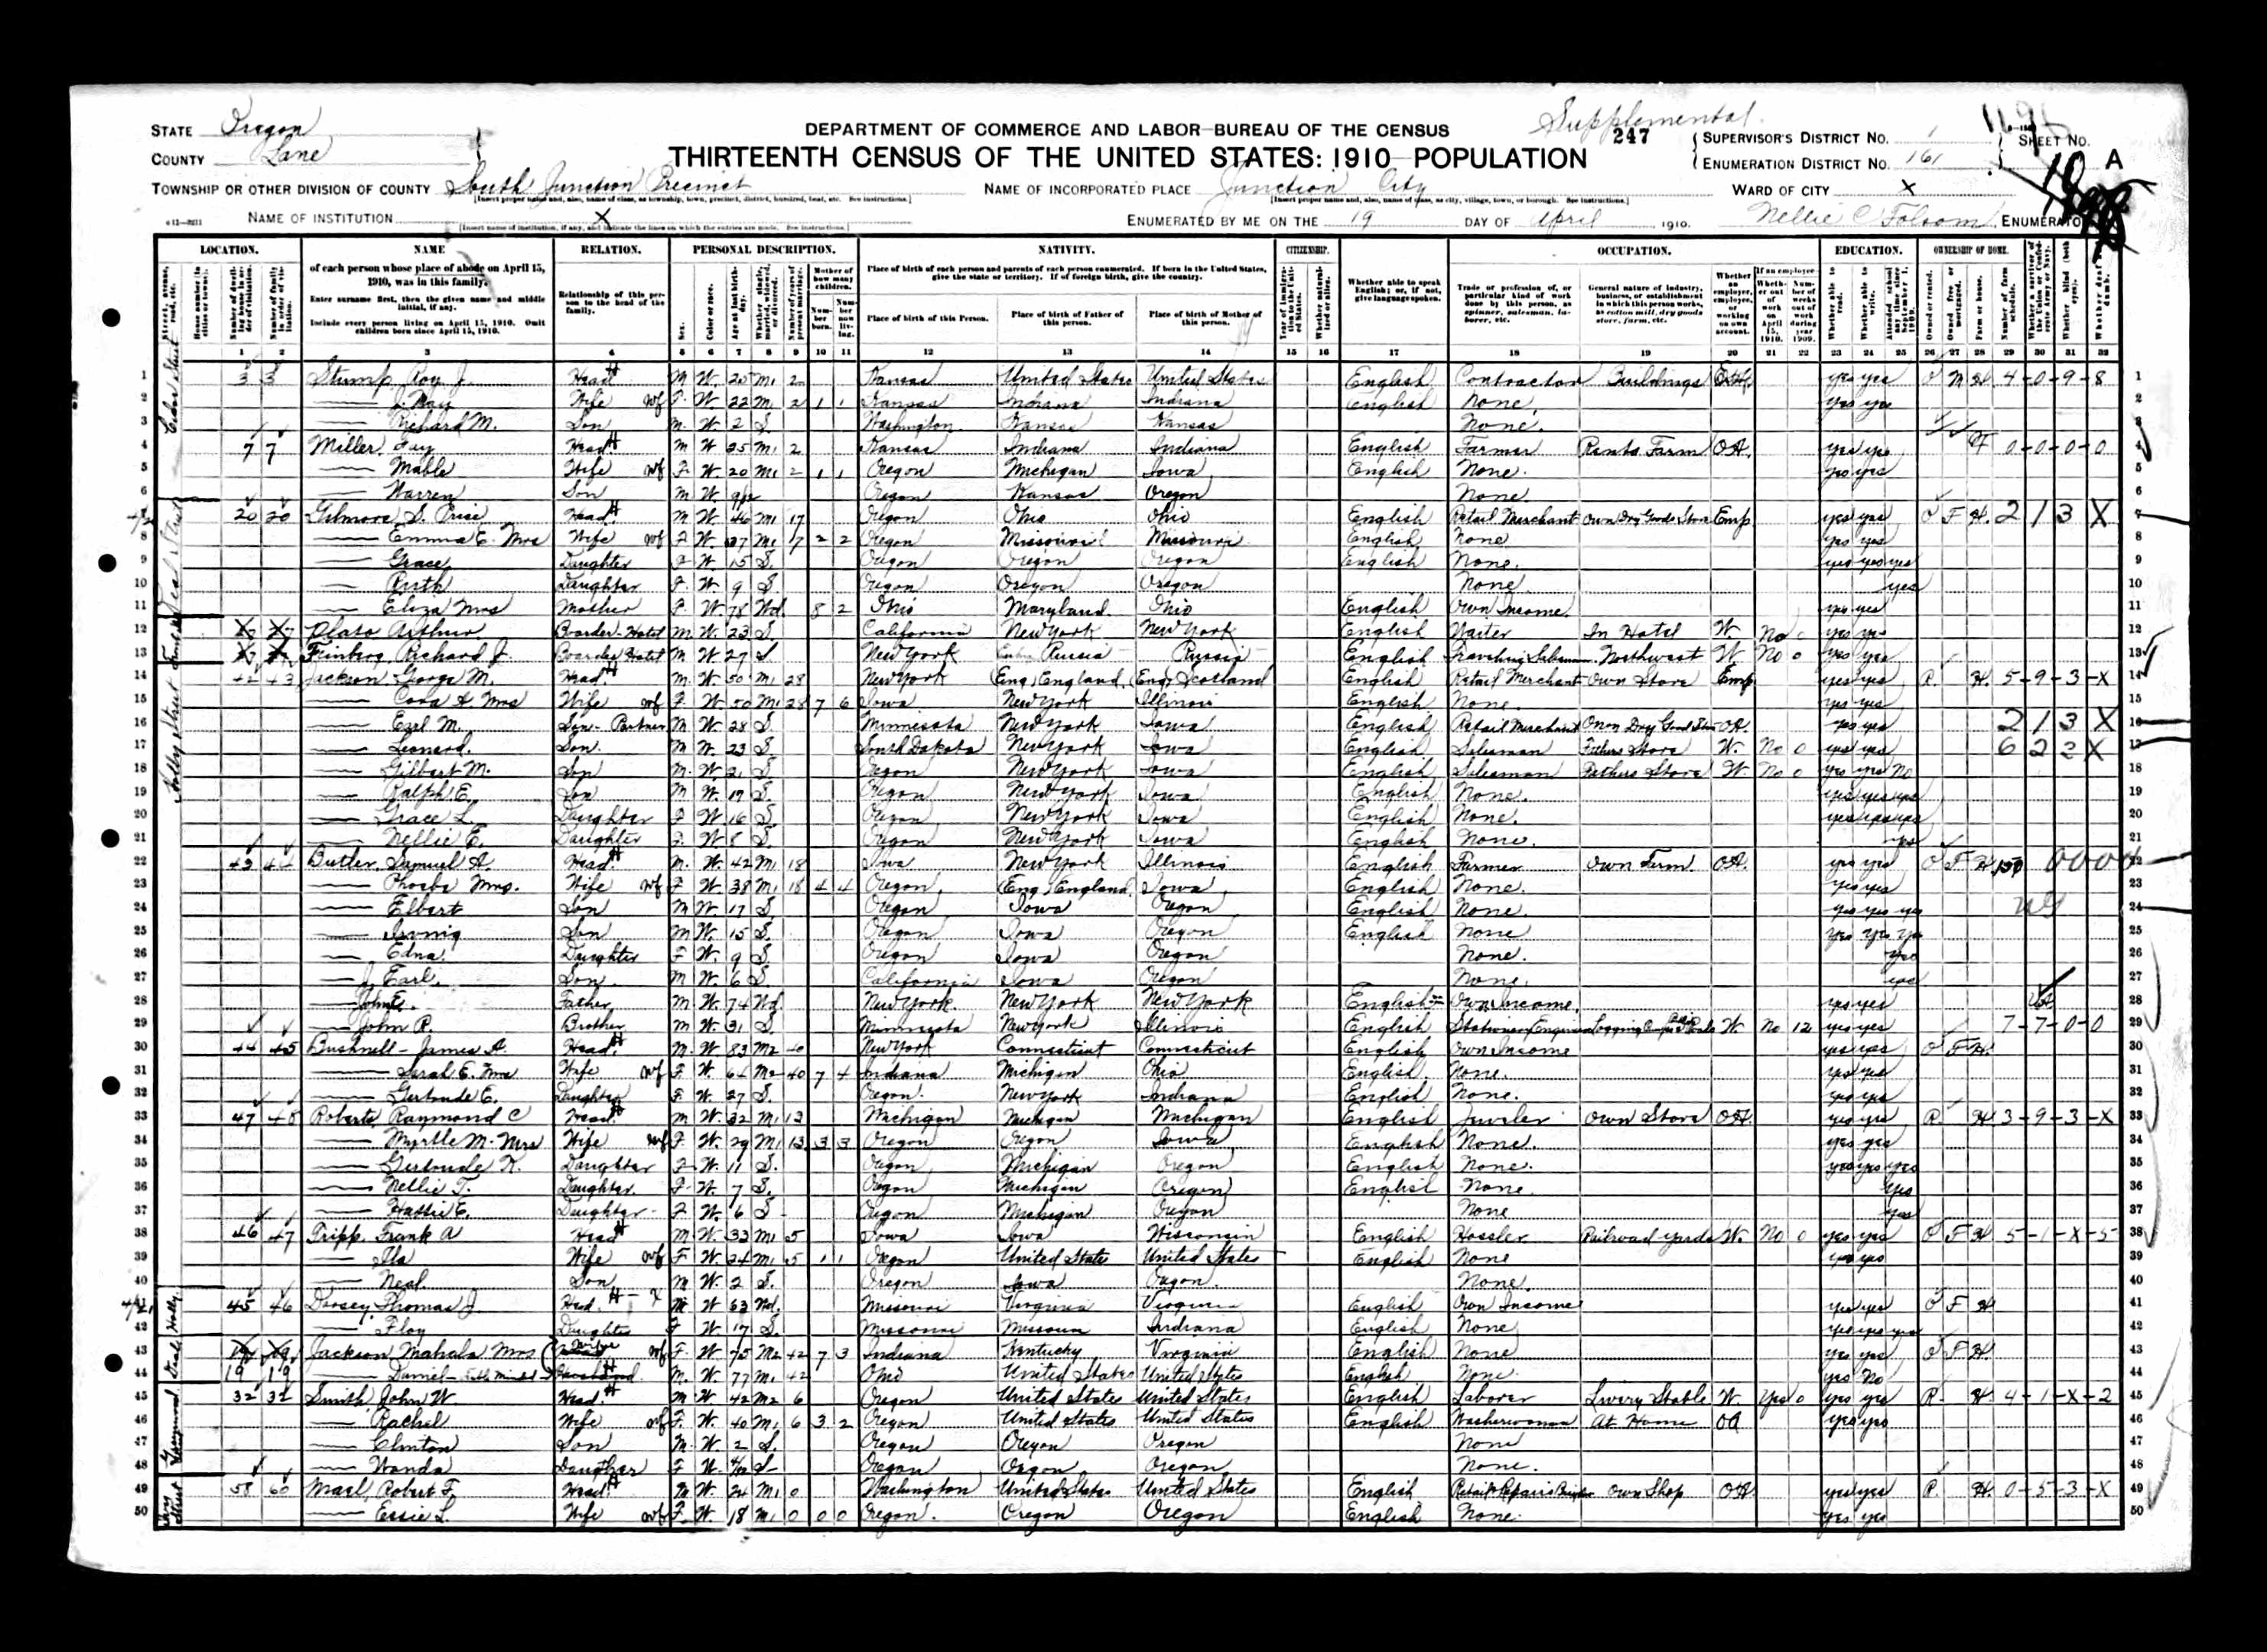 STATE Oregon
COUNTY Lane
DEPARTMENT OF COMMERCE AND LABOR—BUREAU OF THE CENSUS
Supplemental
247
SUPERVISOR'S DISTRICT NO. 1
SHEET NO.
THIRTEENTH CENSUS OF THE UNITED STATES: 1910 POPULATION
ENUMERATION DISTRICT NO. 161
A
TOWNSHIP OR OTHER DIVISION OF COUNTY South Junction Precinct
NAME OF INCORPORATED PLACE Junction City
WARD OF CITY X
NAME OF INSTITUTION X
ENUMERATED BY ME ON THE 19 DAY OF April, 1910. Nellie C. Folsom, ENUMERATOR
LOCATION. NAME RELATION. PERSONAL DESCRIPTION. NATIVITY. CITIZENSHIP. OCCUPATION. EDUCATION. OWNERSHIP OF HOME.
of each person whose place of abode on April 15, 1910, was in this family.
Enter surname first, then the given name and middle initial, if any.
Include every person living on April 15, 1910. Omit children born since April 15, 1910.
Relationship of this person to the head of the family.
Place of birth of each person and parents of each person enumerated. If born in the United States, give the state or territory. If of foreign birth, give the country.
Place of birth of this Person. Place of birth of Father of this person. Place of birth of Mother of this person.
Whether able to speak English; or, if not, give language spoken.
1 2 3 4 5 6 7 8 9 10 11 12 13 14 15 16 17 18 19 20 21 22 23 24 25 26 27 28 29 30 31 32
1 3 3 Stump Roy J. Head M W. 25 M1 2 Kansas United States United States English Contractor Buildings yes yes O M H 4-0-9-8 1
2 J. May Wife F W 22 M1 2 1 1 Kansas Indiana Indiana English None. yes yes 2
3 Richard M. Son M W 2 S. Washington Kansas Kansas None. 3
4 7 7 Miller, Guy Head M W 25 M1 2 Kansas Indiana Indiana English Farmer Rents Farm OA. yes yes 0-0-0-0 4
5 Mable Wife F W. 20 M1 2 1 1 Oregon Michigan Iowa English None. yes yes 5
6 Warren Son M W Oregon Kansas Oregon None. 6
7 20 20 Gilmore S. Price Head M W 46 M1 17 Oregon Ohio Ohio English Retail Merchant Own Dry Goods Store Emp yes yes O F H. 2 1 3 X 7
8 Emma E. Mrs Wife F W 37 M1 17 2 2 Oregon Missouri Missouri English None yes yes 8
9 Grace Daughter F W. 15 S. Oregon Oregon Oregon English None. yes yes yes 9
10 Ruth Daughter F W 9 S Oregon Oregon Oregon None. yes 10
11 Eliza Mrs Mother F W. 78 Wd. 8 2 Ohio Maryland. Ohio English Own Income. yes yes 11
12 Plato Arthur Boarder-Hotel M W. 23 S. California New York New York English Waiter In Hotel W. No yes yes 12
13 Feinberg, Richard J. Boarder Hotel M W. 27 S New York Russia Russia English Traveling Salesman Northwest W. No 0 yes yes 13
14 42 43 Jackson George M. Head M. W. 50 M1 28 New York (Eng) England. (Eng) Scotland English Retail Merchant Own Store Emp yes yes R. H. 5-9-3-X 14
15 Cora A Mrs Wife F. W 50 M1 28 7 6 Iowa New York Illinois English None. yes yes 15
16 Earl M. Son-Partner M W. 28 S. Minnesota New York Iowa English Retail Merchant Own Dry Good Store OA. yes yes 2 1 3 X 16
17 Leonard. Son. M W. 23 S. South Dakota New York Iowa English Salesman Fathers Store W. No 0 yes yes 6 2 2 X 17
18 Gilbert M. Son M. W. 21 S. Oregon New York Iowa English Salesman Fathers Store W. No 0 yes yes No 18
19 Ralph E. Son M W. 19 S. Oregon New York Iowa English None. yes yes yes 19
20 Grace L. Daughter F W 16 S Oregon New York Iowa English None. yes yes yes 20
21 Nellie E. Daughter F. W 8 S. Oregon New York Iowa English None. yes 21
22 43 44 Butler, Samuel A. Head M. W. 42 M1 18 Iowa New York Illinois English Farmer Own Farm OA. yes yes O F 22
23 Phoebe Mrs. Wife F W 38 M1 18 4 4 Oregon (Eng.) England. Iowa English None. yes yes 23
24 Elbert Son M W. 17 S. Oregon Iowa Oregon English None. yes yes yes 24
25 Irving Son M W. 15 S. Oregon Iowa Oregon English None yes yes yes 25
26 Edna Daughter F W. 9 S. Oregon Iowa Oregon None. yes 26
27 J. Earl. Son M W. 6 S. California Iowa Oregon None. yes 27
28 John Father M. W. 74 Wd. New York. New York New York English Own Income. yes yes 28
29 John R. Brother M W. 31 S. Minnesota New York Illinois English Stationary Engineer W. No 12 yes yes 7-7-0-0 29
30 44 45 Bushnell-James A. Head M. W 83 M2 40 New York Connecticut Connecticut English Own Income yes yes O F H. 30
31 Sarah E. Mrs Wife F W. 64 M2 40 7 4 Indiana Michigan Ohio English None. yes yes 31
32 Gertrude E. Daughter F W. 27 S. Oregon. New York Indiana English None. yes yes 32
33 47 48 Roberts Raymond C Head M W. 32 M1 13 Michigan Michigan Michigan English Jeweler Own Store OA. yes yes R. H 3-9-3-X 33
34 Myrtle M. Mrs Wife F. W. 29 M1 13 3 3 Oregon Oregon Iowa English None. yes yes 34
35 Gertrude K. Daughter F. W. 11 S. Oregon Michigan Oregon English None. yes yes yes 35
36 Nellie T. Daughter. F. W. 7 S. Oregon Michigan Oregon English None. yes 36
37 Hattie E. Daughter F W. 6 S Oregon Michigan Oregon None yes 37
38 46 47 Tripp. Frank A Head M W. 33 M1 5 Iowa Iowa Wisconsin English Hossler Railroad Yards W. No 0 yes yes O F H 5-1-X-5 38
39 Ila Wife F W. 24 M1 5 1 1 Oregon United States United States English None yes yes 39
40 Neal. Son M W. 2 S. Oregon Iowa Oregon. None. 40
41 45 46 Dorsey Thomas J Head W 63 Wd. Missouri Virginia Virginia English Own Income yes yes O F H 41
42 Floy Daughter F W. 17 S. Missouri Missouri Indiana English None yes yes yes 42
43 Jackson Mahala Mrs Wife F. W. 75 M2 42 7 3 Indiana Kentucky Virginia English None yes yes O F H. 43
44 19 19 Daniel Husband M. W. 77 M1 42 Ohio United States United States English None. yes No 44
45 32 32 Smith, John W. Head. M W. 42 M2 6 Oregon United States United States English Laborer Livery Stable W. Yes 0 yes yes R. H. 4-1-X-2 45
46 Rachel Wife F. W. 40 M1 6 3 2 Oregon United States United States English Washerwoman At Home OA yes yes 46
47 Clinton Son M. W. 2 S. Oregon Oregon Oregon None 47
48 Wanda Daughter F W. S Oregon Oregon Oregon None. 48
49 58 60 Robert F. Head M W. 24 M1 0 Washington United States United States English Own Shop OA yes yes R. H. 0-5-3-X 49
50 Essie L. Wife F. W. 18 M1 0 0 0 Oregon. Oregon Oregon English None. yes yes 50